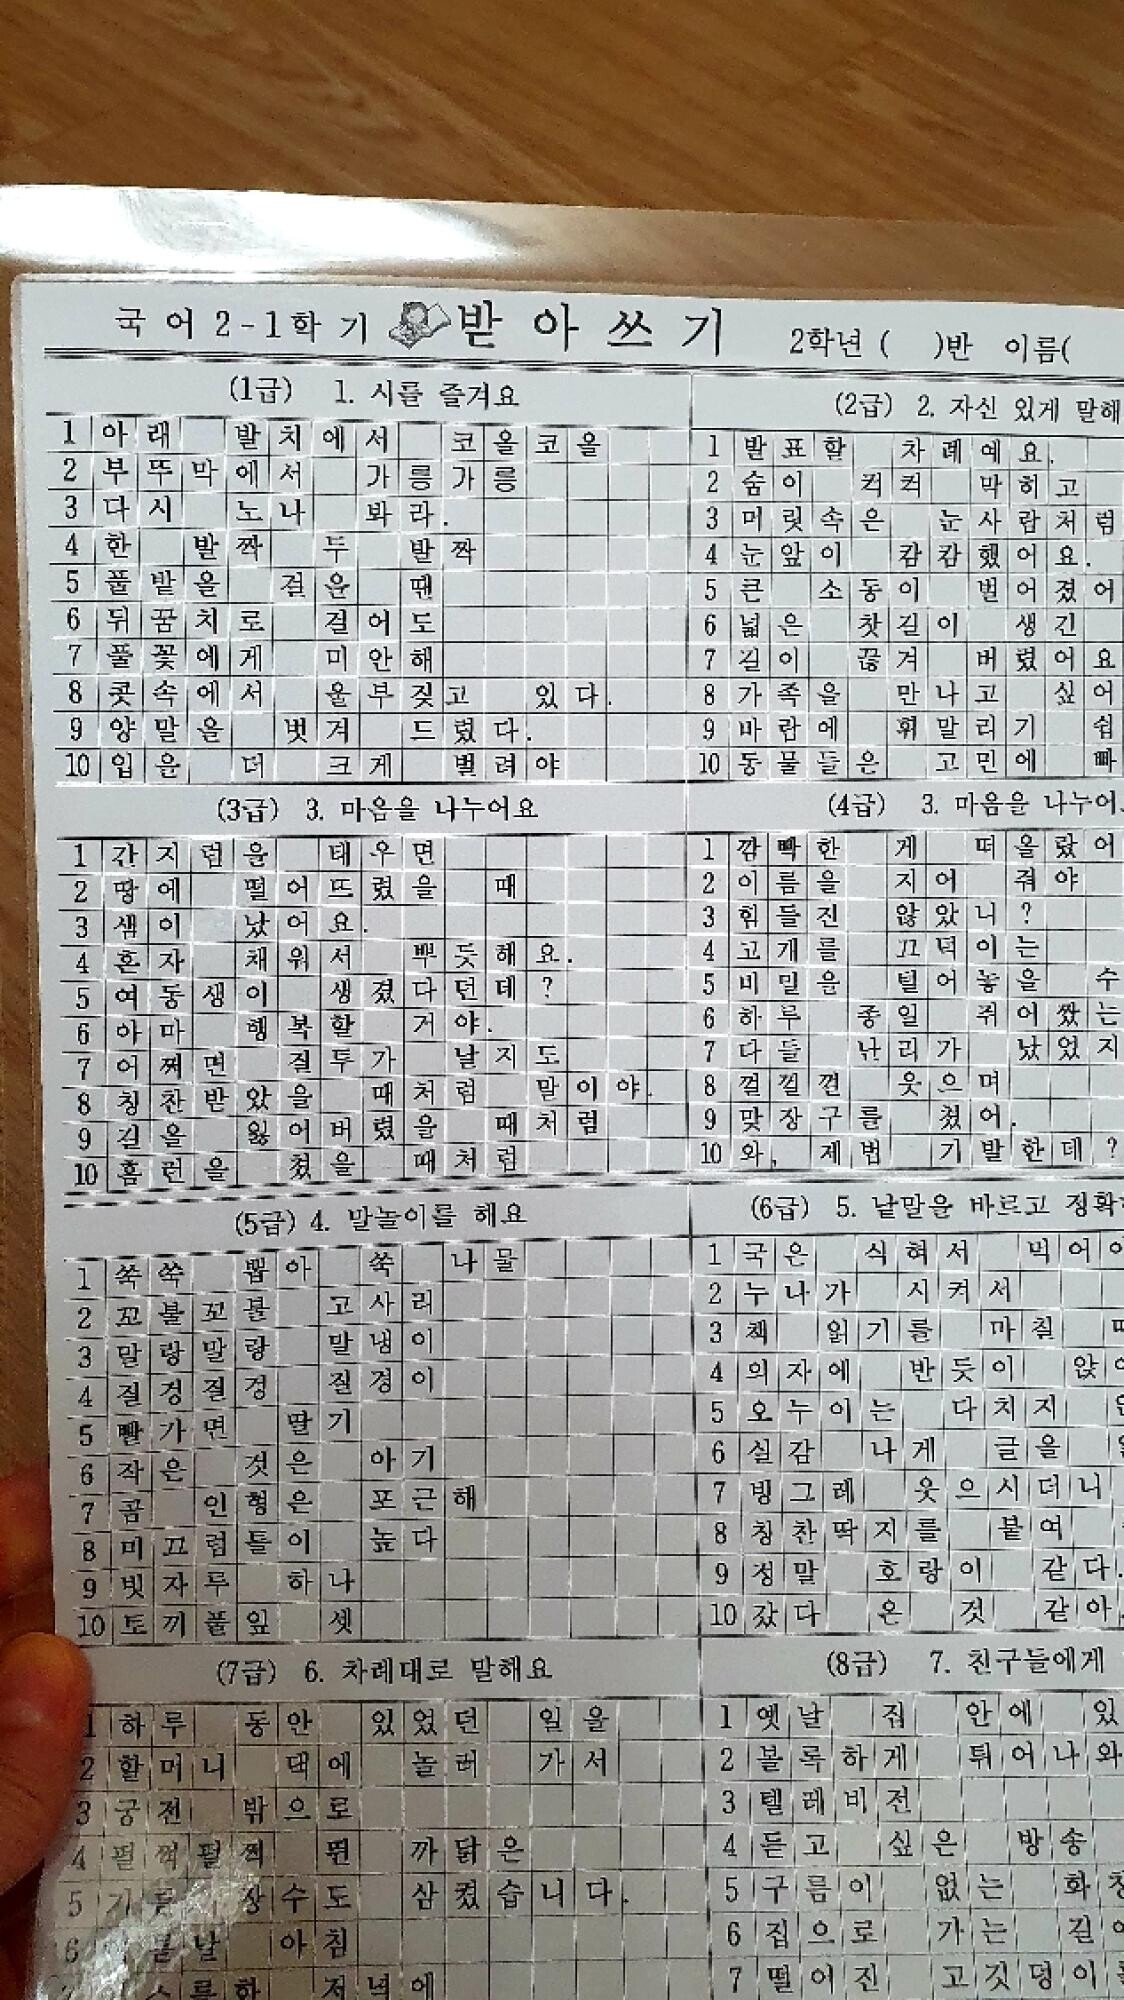 국어 2-1학기 받아쓰기 2학년 ( )반 이름(
(1급) 1. 시를 즐겨요
1 아래 발치에서 코올코올
2 부뚜막에서 가릉가릉
3 다시 노나 봐라.
4 한 발짝 두 발짝
5 풀밭을 걸을 땐
6 뒤꿈치로 걸어도
7 풀꽃에게 미안해
8 콧속에서 울부짖고 있다.
9 양말을 벗겨 드렸다.
10 입을 더 크게 벌려야
(2급) 2. 자신 있게 말해
1 발표할 차례예요.
2 숨이 컥컥 막히고
3 머릿속은 눈사람처럼
4 눈앞이 캄캄했어요.
5 큰 소동이 벌어졌어
6 넓은 찻길이 생긴
7 길이 끊겨 버렸어요
8 가족을 만나고 싶어
9 바람에 휘말리기 쉽
10 동물들은 고민에 빠
(3급) 3. 마음을 나누어요
1 간지럼을 태우면
2 땅에 떨어뜨렸을 때
3 샘이 났어요.
4 혼자 채워서 뿌듯해요.
5 여동생이 생겼다던데?
6 아마 행복할 거야.
7 어쩌면 질투가 날지도
8 칭찬받았을 때처럼 말이야.
9 길을 잃어버렸을 때처럼
10 홈런을 쳤을 때처럼
(4급) 3. 마음을 나누어
1 깜빡한 게 떠올랐어
2 이름을 지어 줘야
3 힘들진 않았니?
4 고개를 끄덕이는
5 비밀을 털어놓을 수
6 하루 종일 쥐어짰는
7 다들 난리가 났었지
8 껄껄껄 웃으며
9 맞장구를 쳤어.
10 와, 제법 기발한데?
(5급) 4. 말놀이를 해요
1 쑥쑥 뽑아 쑥 나물
2 꼬불꼬불 고사리
3 말랑말랑 말냉이
4 질겅질겅 질경이
5 빨가면 딸기
6 작은 것은 아기
7 곰 인형은 포근해
8 미끄럼틀이 높다
9 빗자루 하나
10 토끼풀잎 셋
(6급) 5. 낱말을 바르고 정확
1 국은 식혀서 먹어
2 누나가 시켜서
3 책 읽기를 마칠
4 의자에 반듯이 앉
5 오누이는 다치지
6 실감 나게 글을
7 빙그레 웃으시더니
8 칭찬딱지를 붙여
9 정말 호랑이 같다.
10 갔다 온 것 같아
(7급) 6. 차례대로 말해요
1 하루 동안 있었던 일을
2 할머니 댁에 놀러 가서
3 궁전 밖으로
4 펄쩍펄쩍 뛴 까닭은
5 장수도 삼켰습니다.
6 날 아침
저녁에
(8급) 7. 친구들에게
1 옛날 집 안에 있
2 볼록하게 튀어나와
3 텔레비전
4 듣고 싶은 방송
5 구름이 없는 화창
6 집으로 가는 길
7 떨어진 고깃덩이